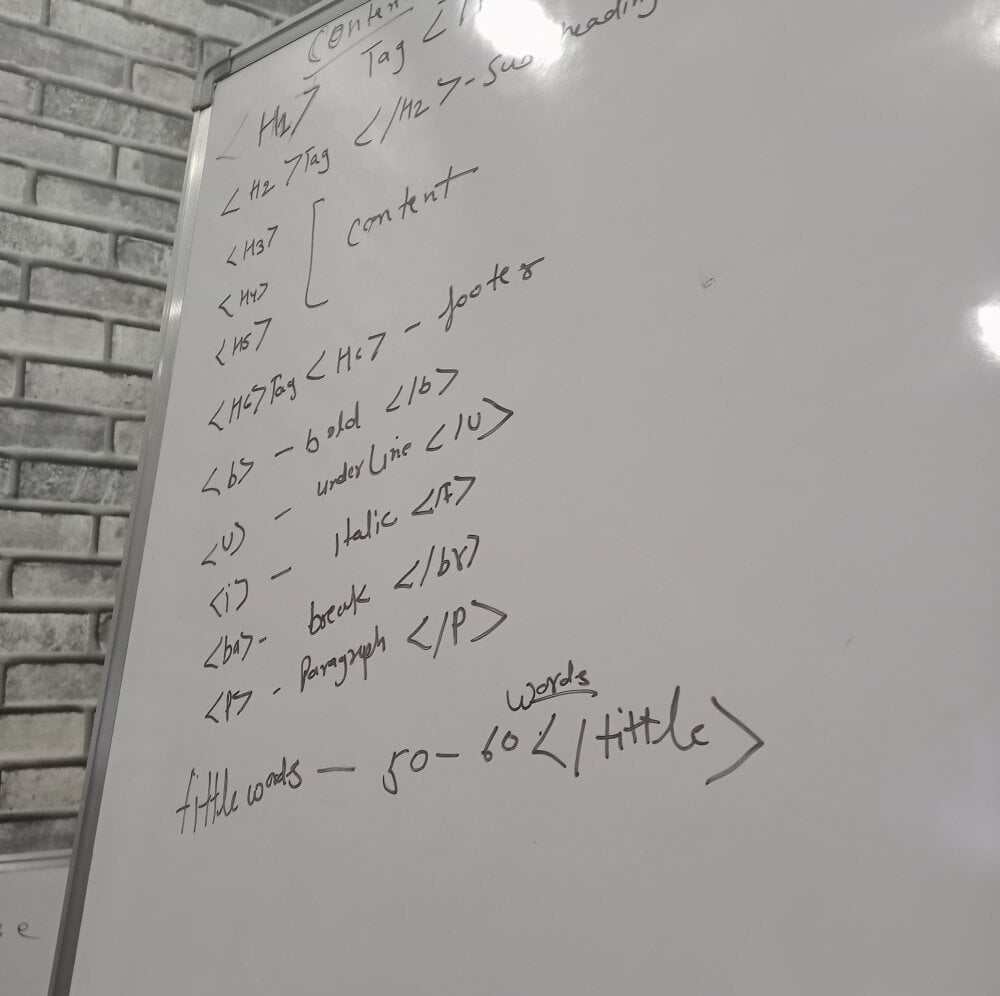 Conten
<H1> Tag </
<H2>Tag </H2>- Sub heading
<H3>
content
<H4>
<H5>
<H6>Tag <H6> - footer
<b> - bold </b>
<U> - underLine </U>
<i> - italic </I>
<ba>- break </br>
<P> - Paragraph </P>
words
tittle words - 50-60 </tittle>
e